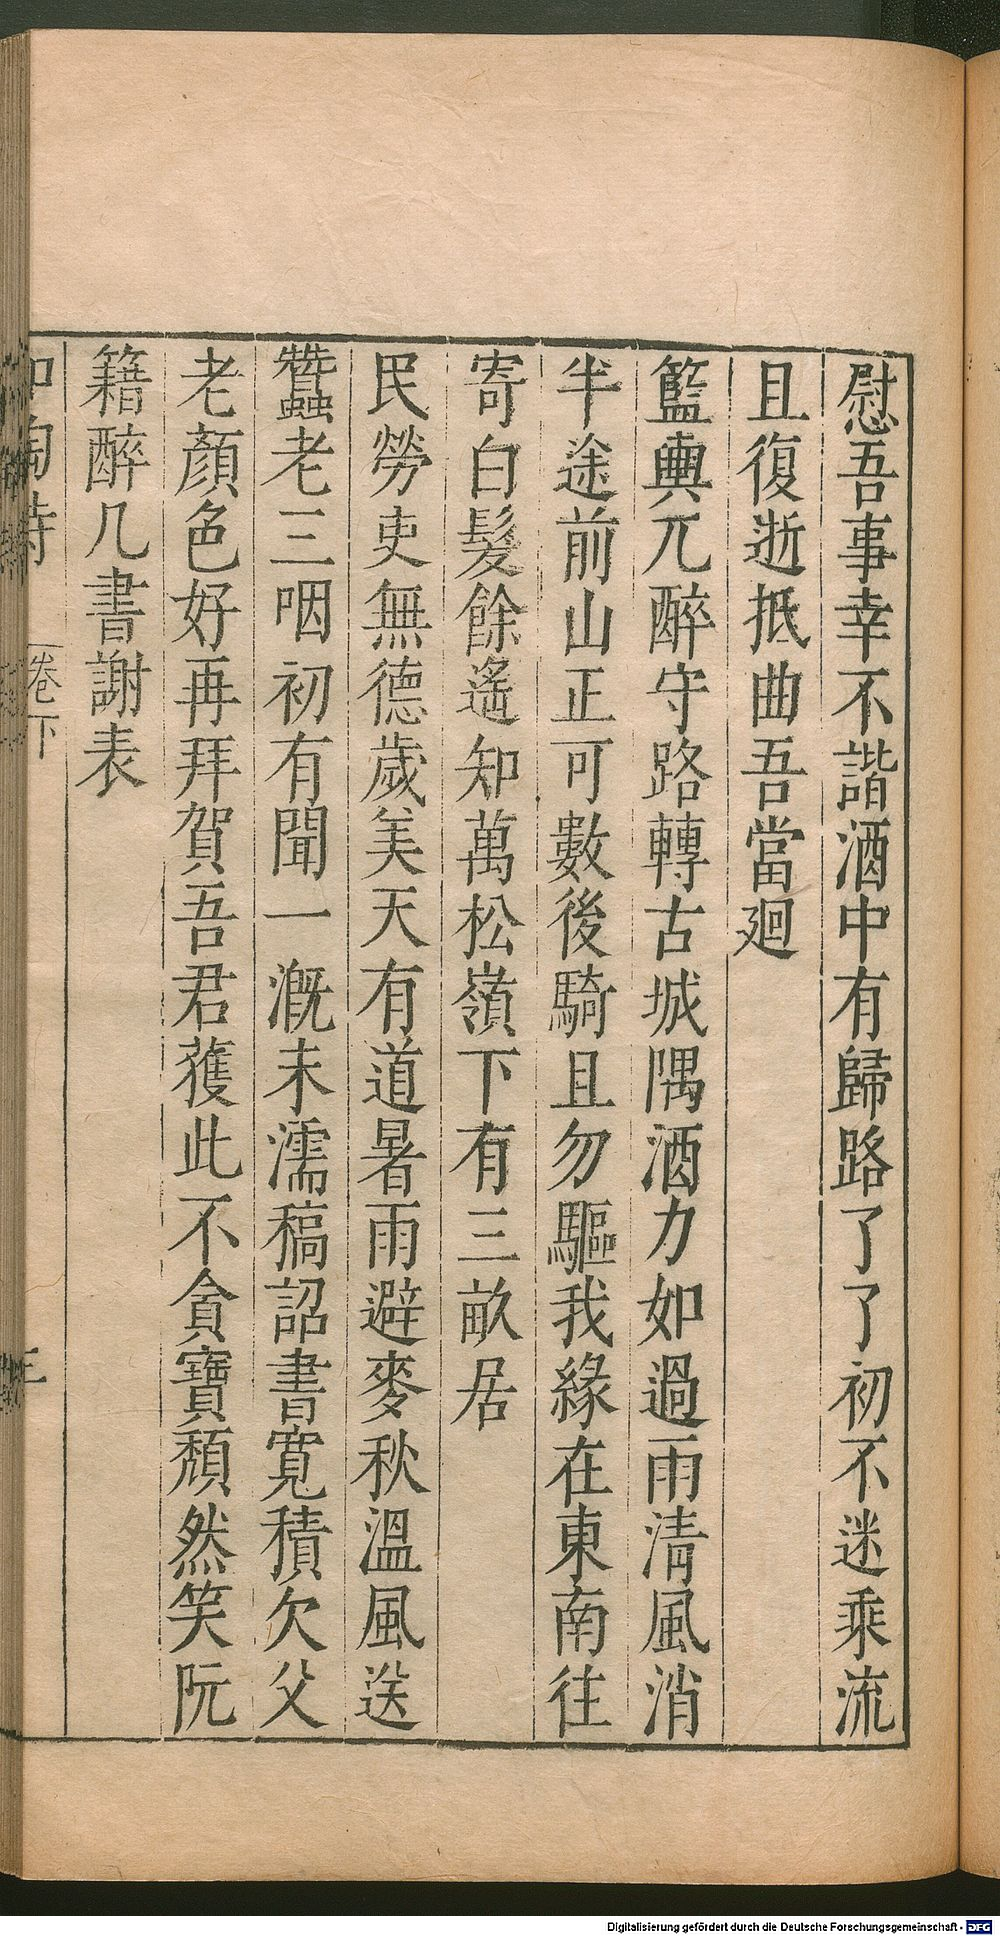 慰吾事幸不諧酒中有歸路了了初不迷乘流
且復逝抵曲吾當廻
籃輿兀醉守路轉古城隅酒力如過雨清風消
半途前山正可數後騎且勿驅我緣在東南往
寄白髮餘遙知萬松嶺下有三畝居
民勞吏無德歲美天有道暑雨避麥秋溫風送
蠶老三咽初有聞一漑未濡稿詔書寬積欠父
老顏色好再拜賀吾君獲此不貪寶頽然笑阮
籍醉几書謝表
和陶詩 卷下
Digitalisierung gefördert durch die Deutsche Forschungsgemeinschaft - DFG